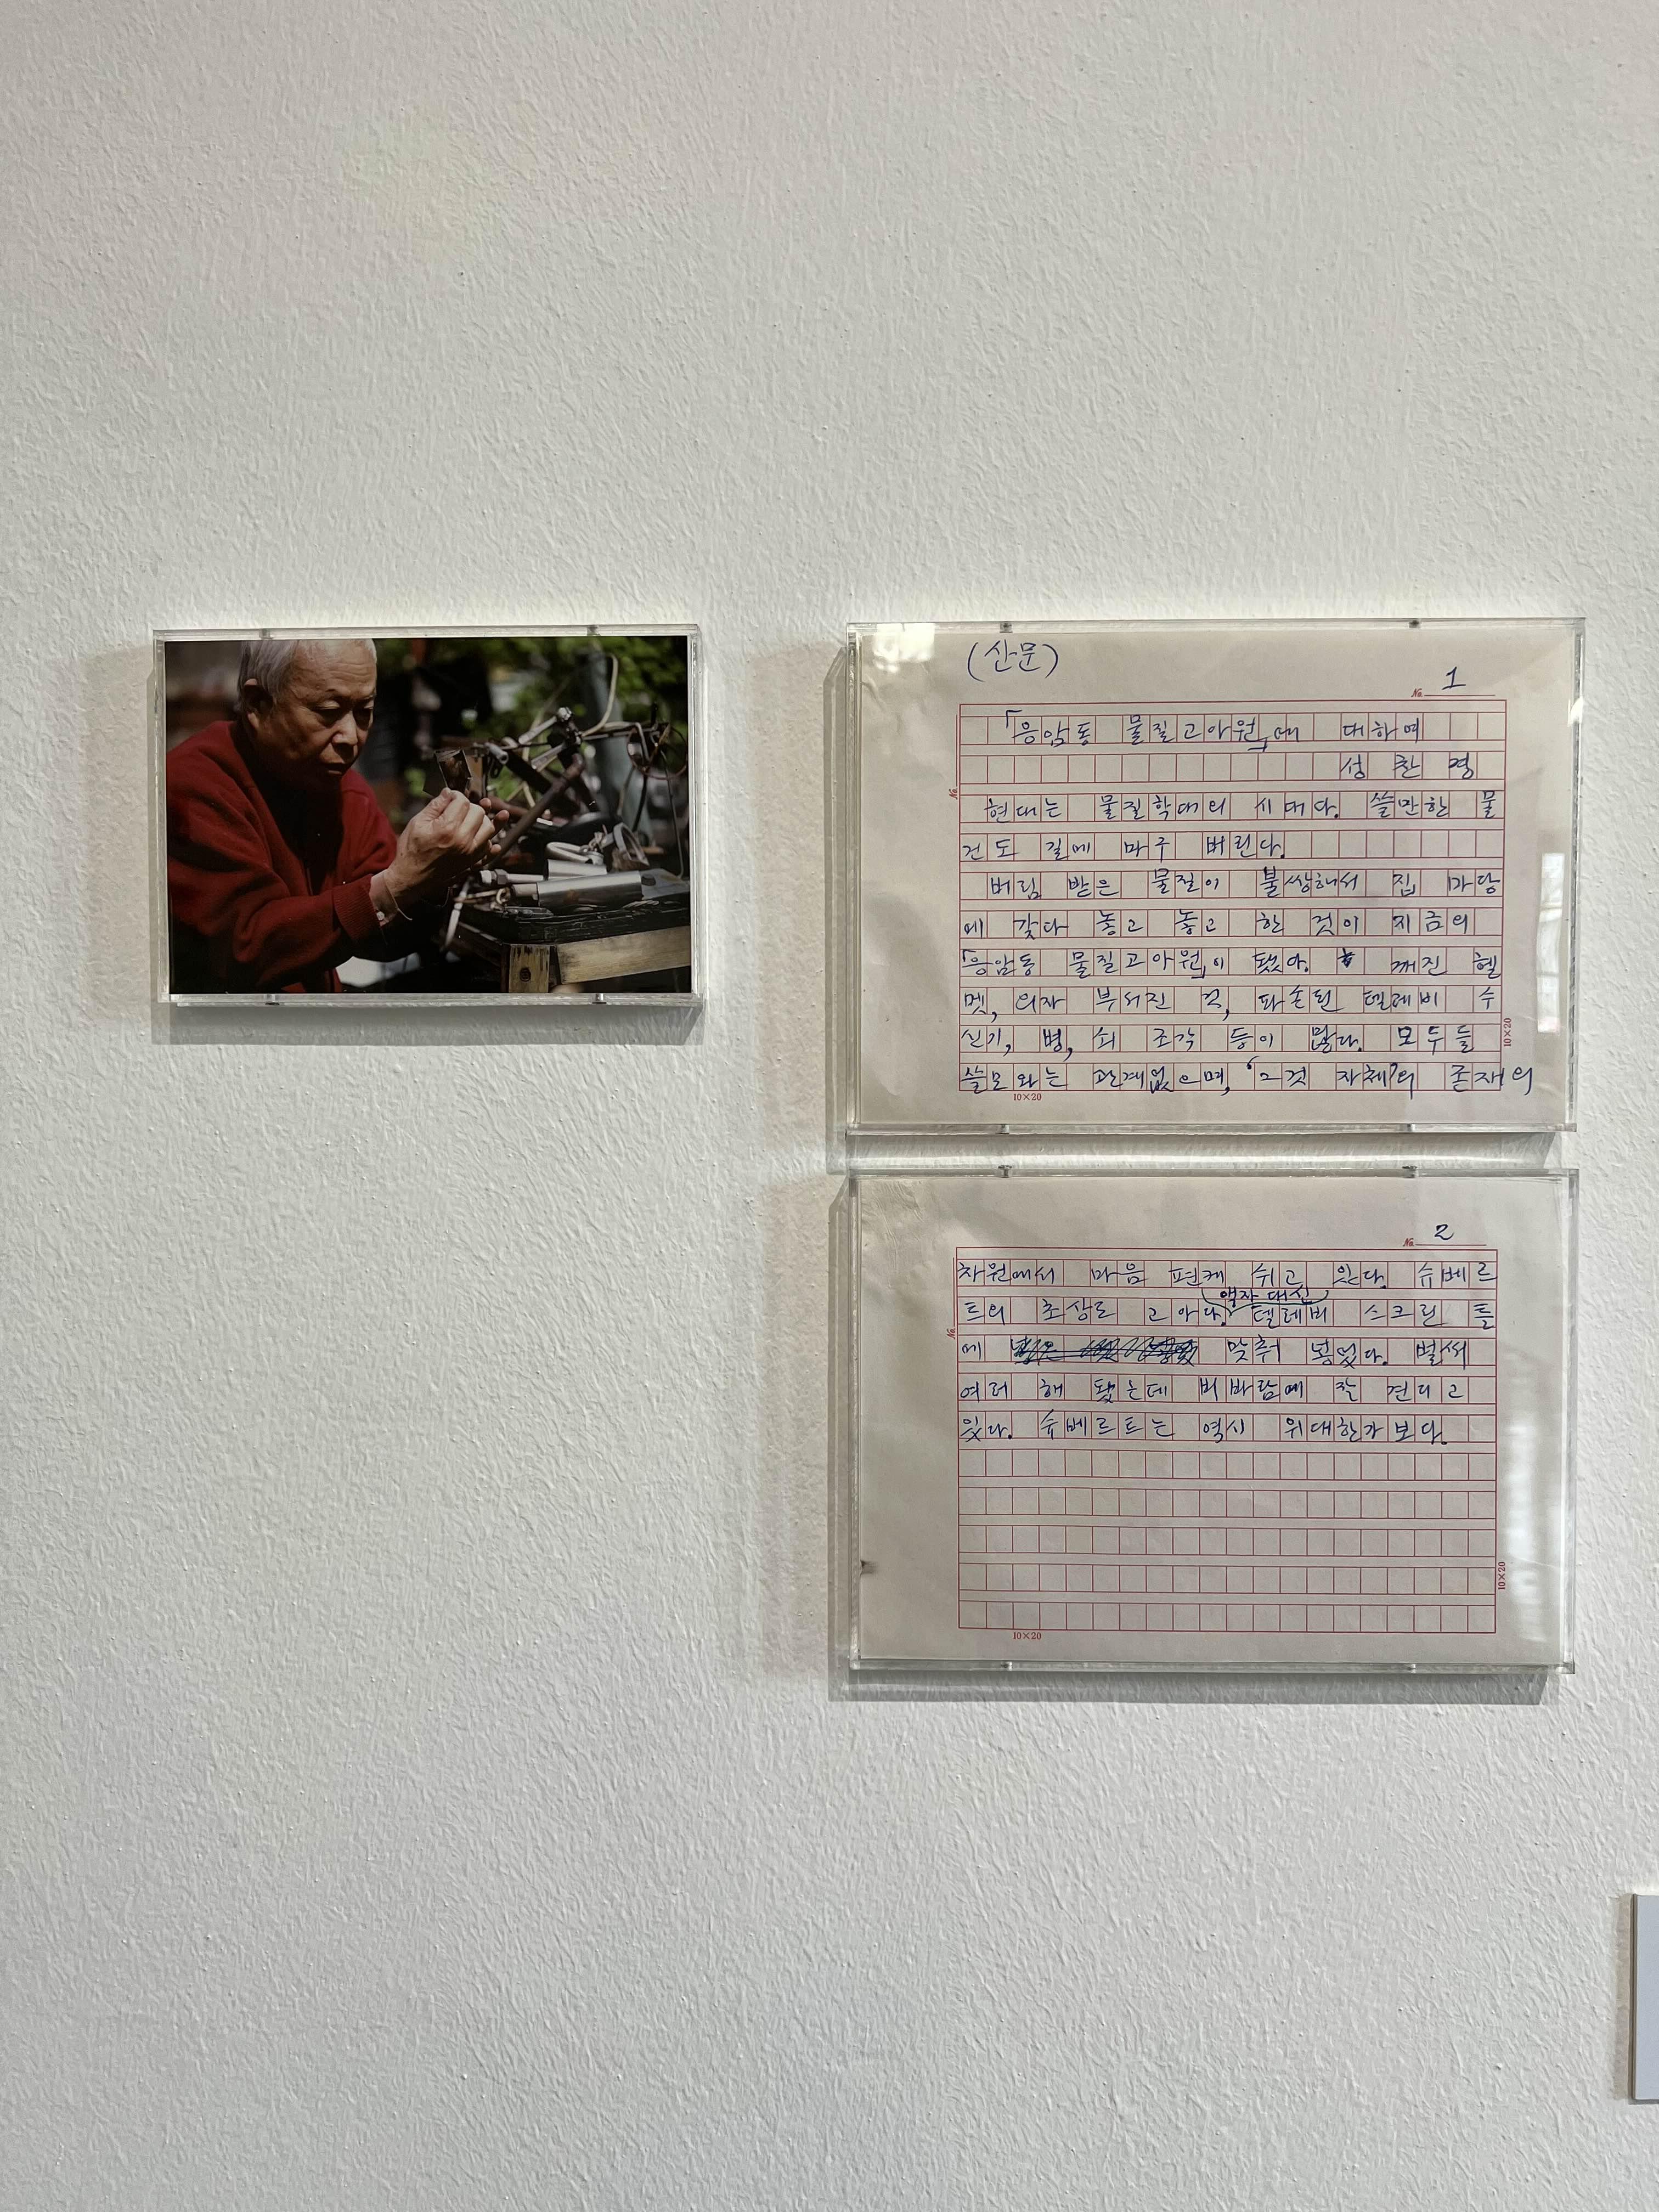 (산문)
No. 1
「응암동 물질고아원」에 대하여
성찬경
현대는 물질학대의 시대다. 쓸만한 물
건도 길에 마구 버린다.
버림 받은 물질이 불쌍해서 집 마당
에 갖다 놓고 놓고 한 것이 지금의
「응암동 물질고아원」이 됐다. 깨진 헬
멧, 의자 부서진 것, 파손된 텔레비 수
신기, 병, 쇠 조각 등이 많다. 모두들
쓸모와는 관계없으며, ‘그것 자체’의 존재의
10×20
10×20
No. 2
차원에서 마음 편케 쉬고 있다. 슈베르
액자 대신
트의 초상도 고아다. 텔레비 스크린 틀
에 맞춰 넣었다. 벌써
여러 해 됐는데 비바람에 잘 견디고
있다. 슈베르트는 역시 위대한가 보다.
10×20
10×20
No.
No.